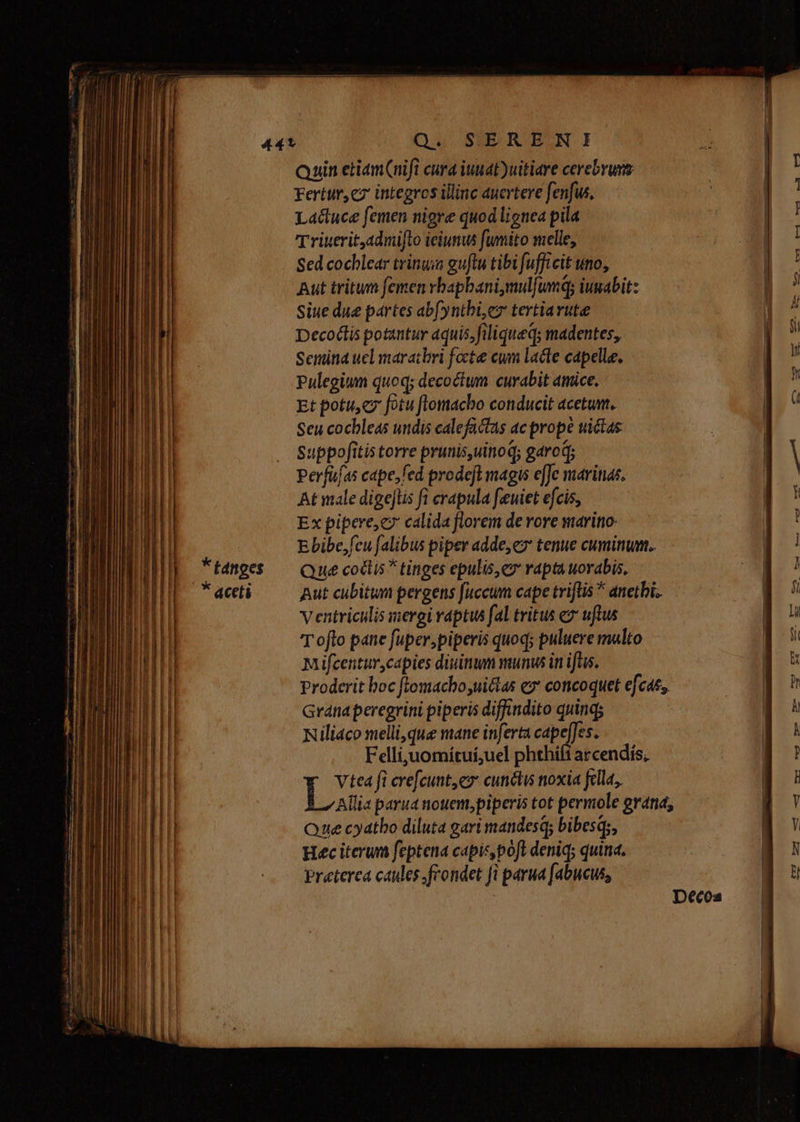 442 Q. SERENI
Quin etiam (nisi cura iuuat) uitiare cerebrum
Fertur, & integros illinc auertere sensus,
Lactuce semen nigræ quod lignea pila
Triuerit, admisto ieiunus sumito melle,
Sed cochlear trinum gustu tibi sufficit uno,
Aut tritum semen rhaphani, mulsumq; iuuabit:
Siue duæ partes absynthi, & tertia rutæ
Decoctis potantur aquis, siliqueq; madentes,
Semina uel marathri fœte cum lacte capelle.
Pulegium quoq; decoctum curabit amice.
Et potu, & fotu stomacho conducit acetum.
Seu cochleas undis calefactas ac propè uictas
Suppositis torre prunis, uinoq; garoq;
Perfusas cape, sed prodest magis esse marinas.
At male digestis si crapula sæuiet escis,
Ex pipere, & calida florem de rore marino
Ebibe, seu salibus piper adde, & tenue cuminum.
*tanges Que coctis * tinges epulis, & rapta uorabis.
*aceti Aut cubitum pergens succum cape tristis * anethi.
Ventriculis mergi raptus sal tritus & ustus
Tosto pane super, piperis quoq; puluere multo
Miscentur, capies diuinum munus in istis.
Proderit hoc stomacho, uictas & concoquet escas,
Grana peregrini piperis diffindito quinq;
Niliaco melli, que mane inserta capesses.
Felli, uomítuí, uel phthisi arcendís,
LVtea si crescunt, & cunctis noxia fella,
Allia parua nouem, piperis tot permole grana,
Que cyatho diluta gari mandesq; bibesq;,
Hæc iterum septena capis, pòst deniq; quina.
Præterea caules, frondet si parua sabucus,
Decos